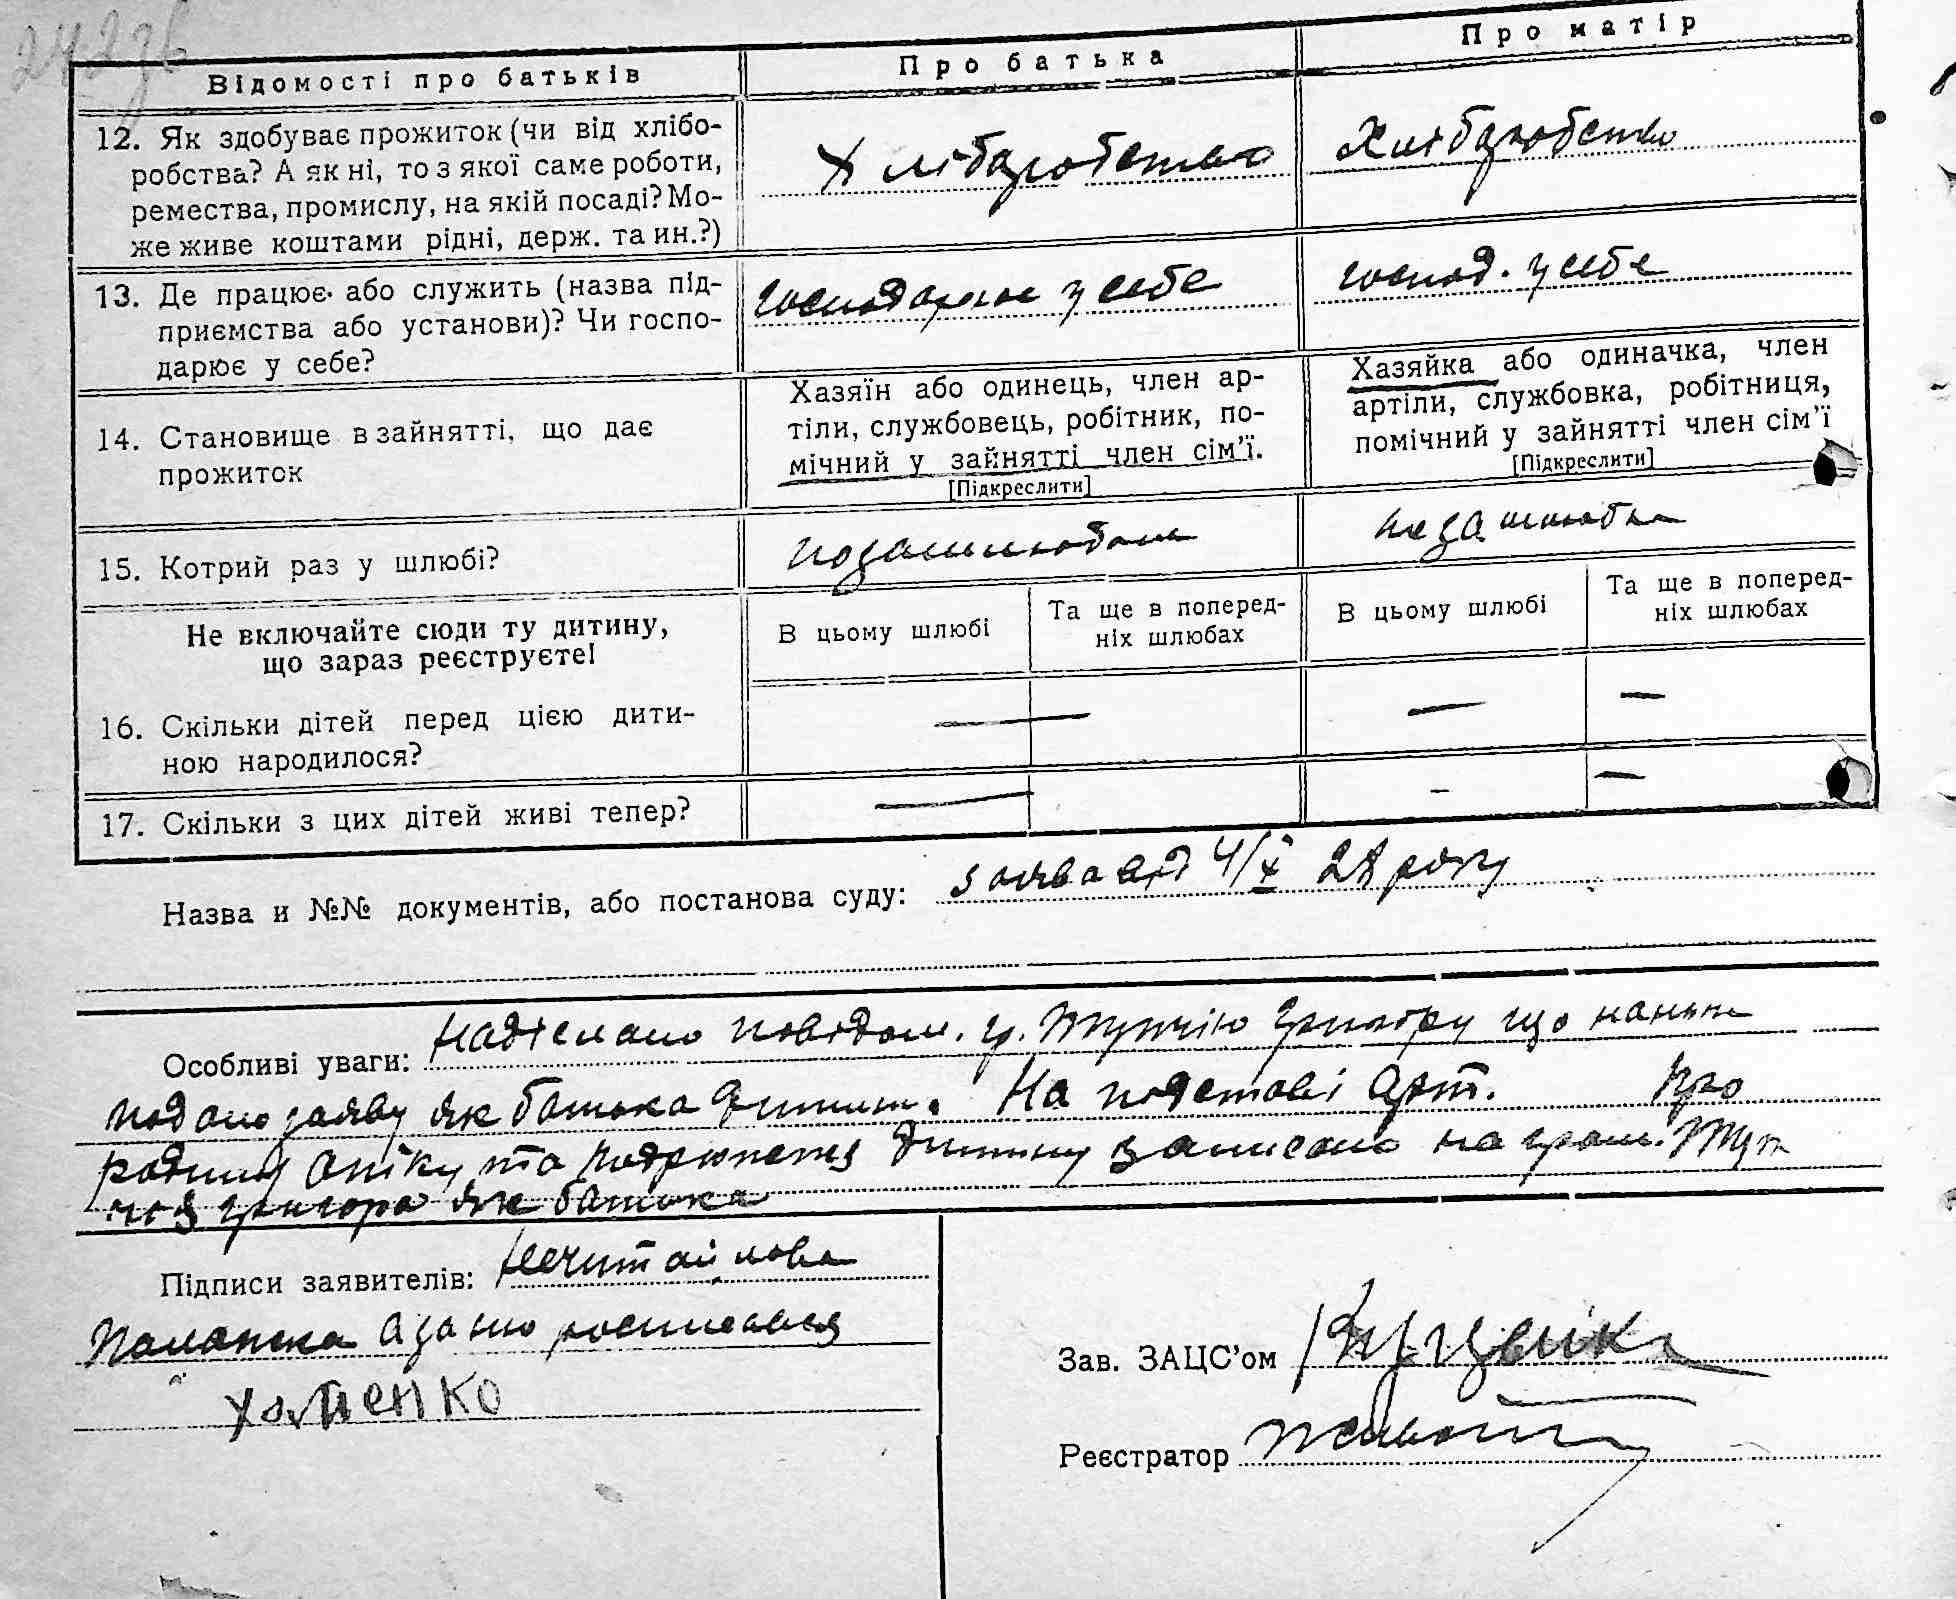 Відомості про батьків
Про батька
Про матір
12. Як здобуває прожиток (чи від хлібо-
робства? А як ні, то з якої саме роботи,
ремества, промислу, на якій посаді? Мо-
же живе коштами рідні, держ. та ин.?)
Хліборобство
Хліборобство
13. Де працює або служить (назва під-
приємства або установи)? Чи госпо-
дарює у себе?
господарює у себе
господ. у себе
14. Становище в зайнятті, що дає
прожиток
Хазяїн або одинець, член ар-
тіли, службовець, робітник, по-
мічний у зайнятті член сім'ї.
[Підкреслити]
Хазяйка або одиначка, член
артіли, службовка, робітниця,
помічний у зайнятті член сім'ї
[Підкреслити]
15. Котрий раз у шлюбі?
позашлюбом
незашлюбна
Не включайте сюди ту дитину,
що зараз реєструєте!
В цьому шлюбі
Та ще в поперед-
ніх шлюбах
В цьому шлюбі
Та ще в поперед-
ніх шлюбах
16. Скільки дітей перед цією дити-
ною народилося?
— — —
17. Скільки з цих дітей живі тепер?
— — —
Назва и №№ документів, або постанова суду: заява від 4/X 28 року
Особливі уваги: Надіслано повідом. гр. Григору що на
подано заяву як батька дитини. На підставі Арт. про
родину опіку та подружжя дитину записано на гром.
Григора як батька
Підписи заявителів: Нечитайлова
Палажка а заню росписався
Хоменко
Зав. ЗАЦС'ом
Реєстратор